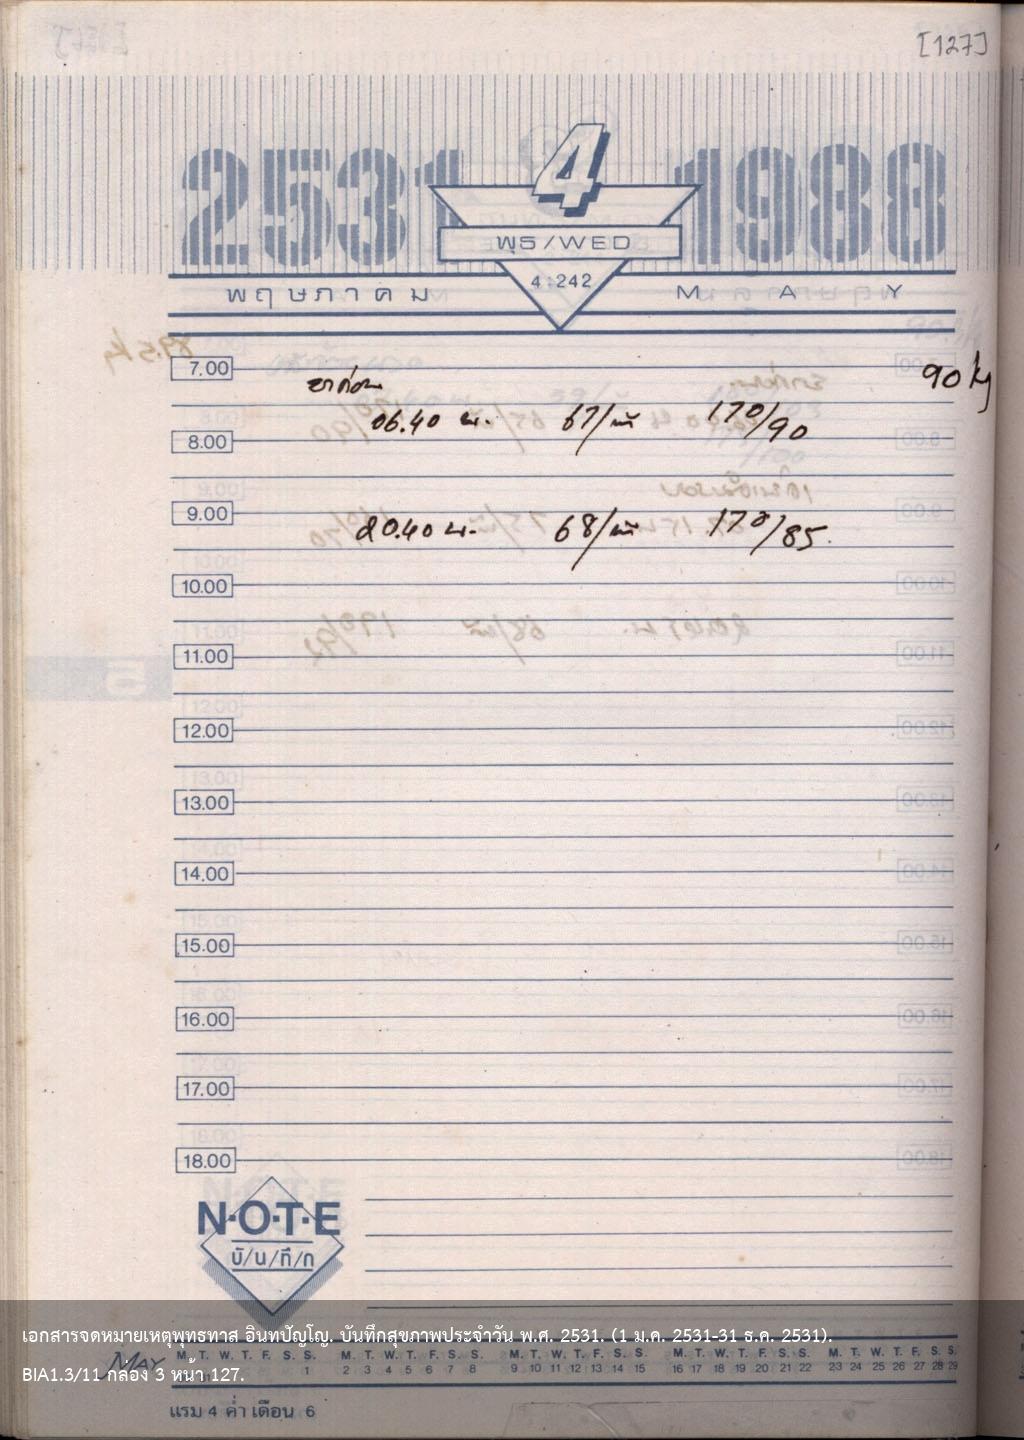 [127]
2531 4 1988
พุธ/WED
4:242
พฤษภาคม MAY
7.00
90 kg
ยาก่อน
06.40 น. 67/นาที 170/90
8.00
9.00
20.40 น. 68/นาที 170/85
10.00
11.00
12.00
13.00
14.00
15.00
16.00
17.00
18.00
N·O·T·E
บั/น/ทึ/ก
เอกสารจดหมายเหตุพุทธทาส อินทปัญโญ. บันทึกสุขภาพประจำวัน พ.ศ. 2531. (1 ม.ค. 2531-31 ธ.ค. 2531).
MAY M. T. W. T. F. S. S. M. T. W. T. F. S. S. M. T. W. T. F. S. S. M. T. W. T. F. S. S. M. T. W. T. F. S. S.
1 2 3 4 5 6 7 8 9 10 11 12 13 14 15 16 17 18 19 20 21 22 23 24 25 26 27 28 29
BIA1.3/11 กล่อง 3 หน้า 127.
แรม 4 ค่ำ เดือน 6